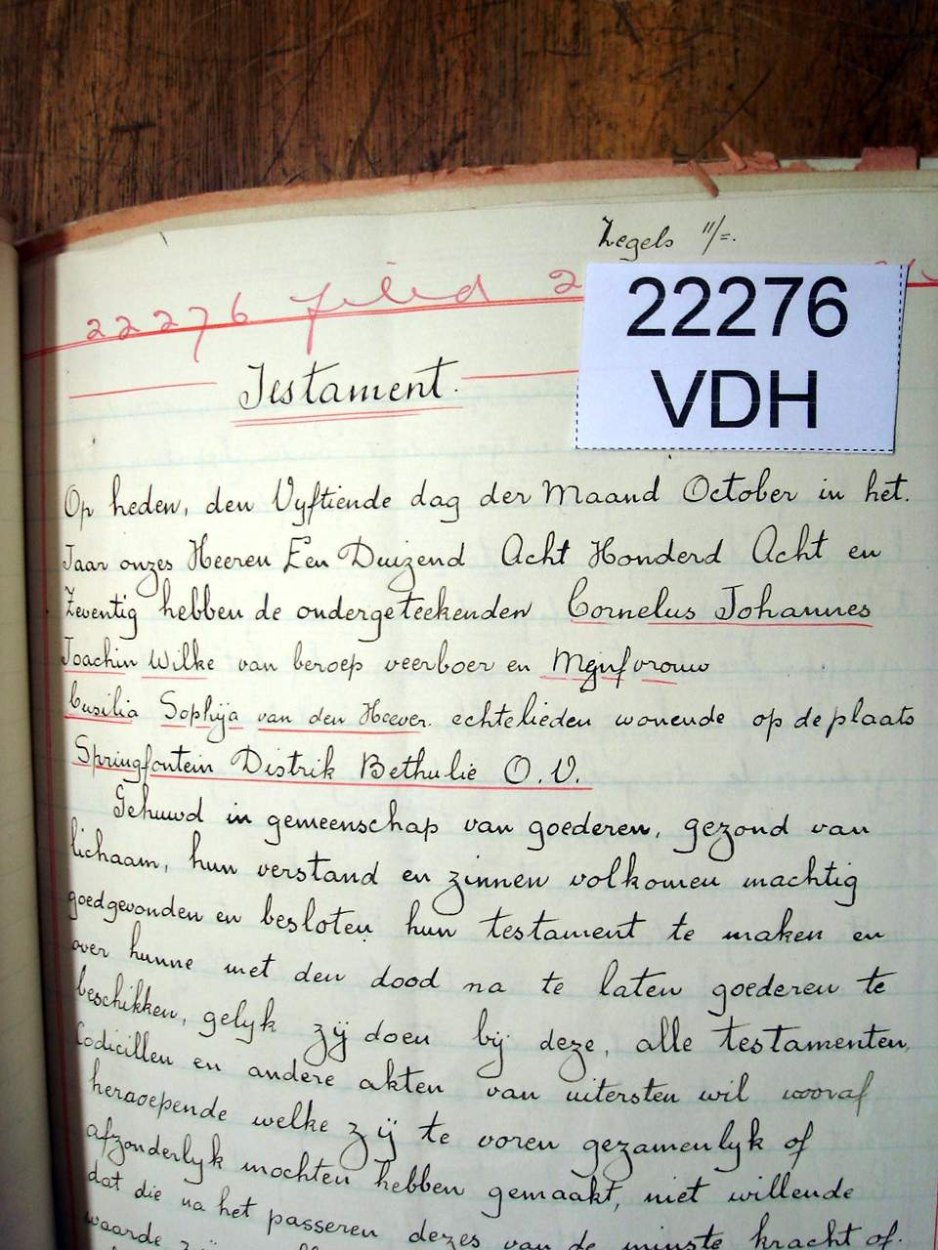 Zegels 11/=.
22276 filed 2
22276
VDH
Testament.
Op heden, den Vyftiende dag der Maand October in het.
Jaar onzes Heeren Een Duizend Acht Honderd Acht en
Zeventig hebben de ondergeteekenden Cornelus Johannes
Joachin Wilke van beroep veerboer en Mejufvrouw
Cusilia Sophija van den Heever. echtelieden wonende op de plaats
Springfontein Distrik Bethulie O.V.
Gehuwd in gemeenschap van goederen, gezond van
lichaam, hun verstand en zinnen volkomen machtig
goedgevonden en besloten hun testament te maken en
over hunne met den dood na te laten goederen te
beschikken, gelyk zij doen bij deze, alle testamenten,
Codicillen en andere akten van uitersten wil vooraf
heraoepende welke zij te voren gezamenlyk of
afzonderlyk mochten hebben gemaakt, niet willende
dat die na het passeren dezes van de minste kracht of.
waarde